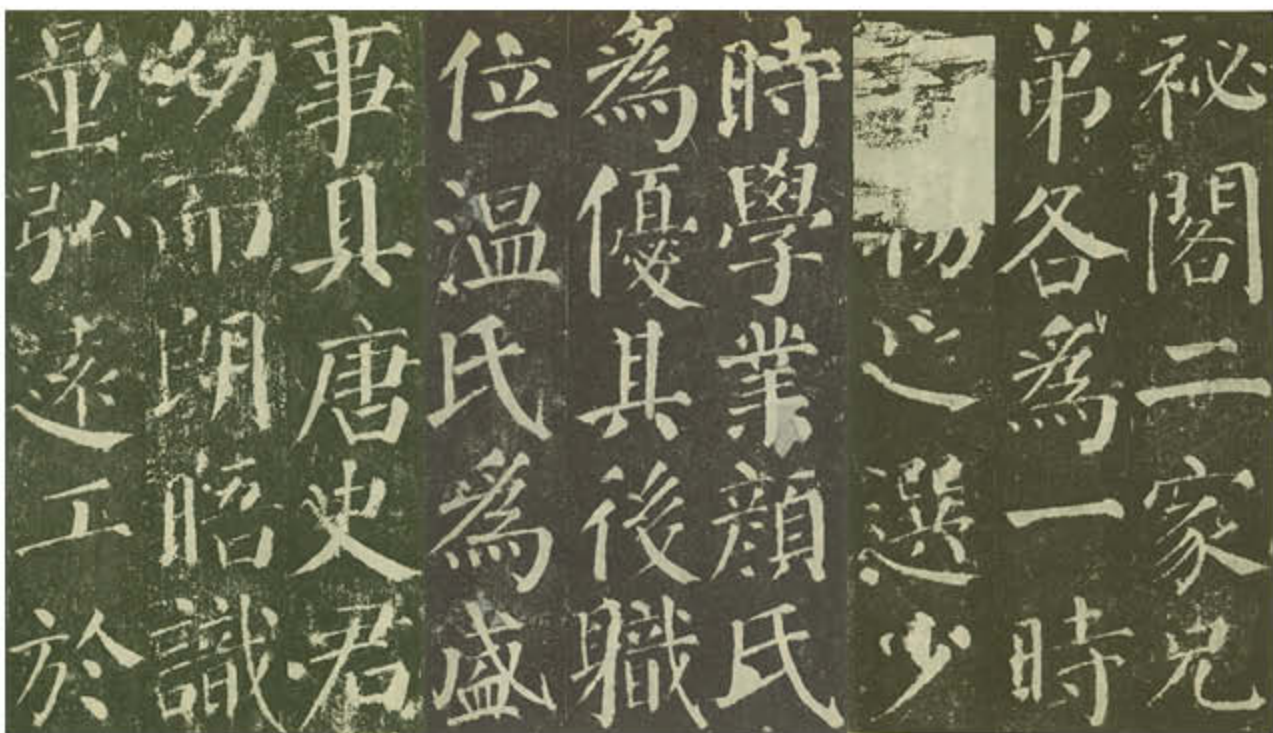 祕閣二家兄
弟各為一時
之選少
時學業顏氏
為優其後職
位温氏為盛
事具唐史君
幼而朗晤識
量弘遠工於